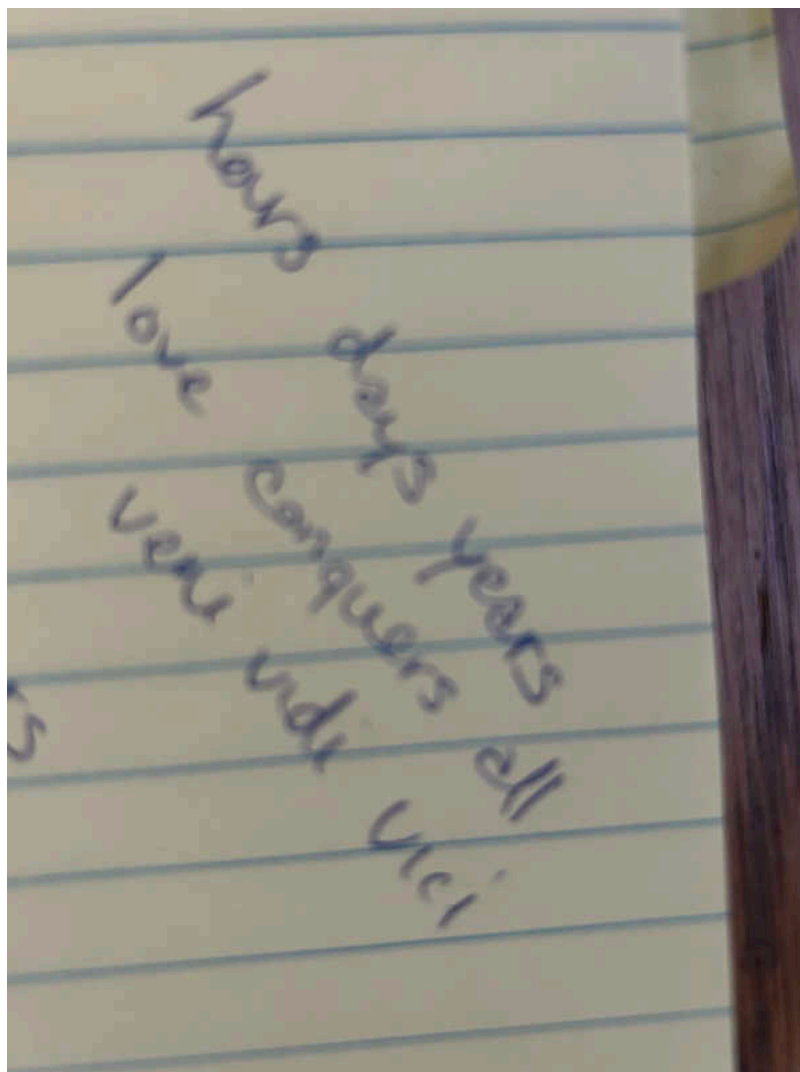 hours days years
love conquers all
veni vidi vici